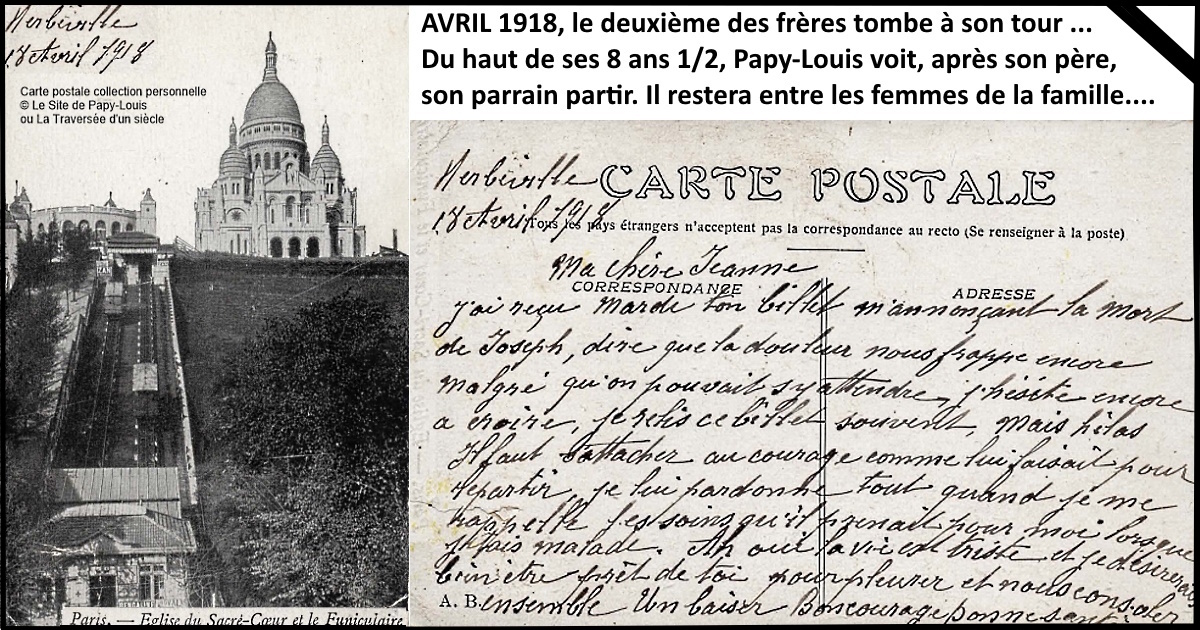 Herbéville
18 Avril 1918
Carte postale collection personnelle
© Le Site de Papy-Louis
ou La Traversée d'un siècle
Paris. — Eglise du Sacré-Cœur et le Funiculaire.
AVRIL 1918, le deuxième des frères tombe à son tour ...
Du haut de ses 8 ans 1/2, Papy-Louis voit, après son père,
son parrain partir. Il restera entre les femmes de la famille....
Herbéville
CARTE POSTALE
18 Avril 1918
Tous les pays étrangers n'acceptent pas la correspondance au recto (Se renseigner à la poste)
Ma chère Jeanne
CORRESPONDANCE
ADRESSE
j'ai reçu Mardi ton billet m'annonçant la mort
de Joseph, dire que la douleur nous frappe encore
malgré qu'on pouvait s'y attendre, j'hésite encore
a croire, je relis ce billet souvent, Mais hélas
Il faut s'attacher au courage comme lui faisait pour
repartir, je lui pardonne tout quand je me
rappelle les soins qu'il prenait pour moi lorsque
j'étais malade. Ah oui la vie est triste et je désirerais
bien être près de toi pour pleurer et nous consoler
A. B.
ensemble Un baiser Bon courage bonne santé